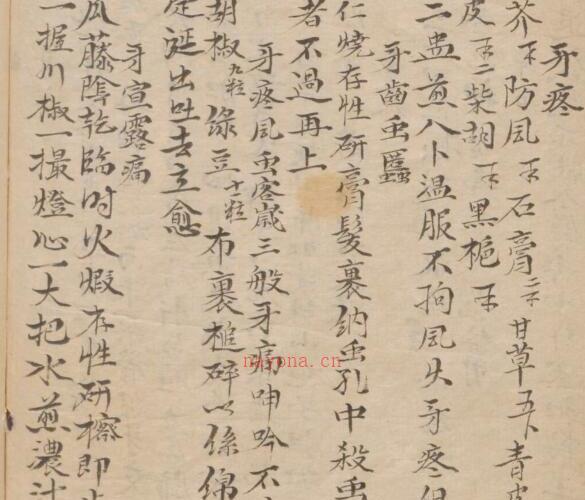 牙疼
芥 防風 石膏 甘草五卜青皮
皮 二柴胡 黑梔
二盅煎八卜温服不拘風火牙疼但
牙齒虫䘌
仁燒存性研膏髮裹納虫孔中殺虫
者不過再上
牙疼風虫客嵗三般牙痛呻吟不
胡椒九粒 绿豆十一粒 布裹槌碎以係綿
定涎出吐去立愈
牙宣露痛
瓜藤陰乾臨时火煆存性研擦即
一握川椒一撮燈心一大把水煎濃汁
nayona.cn